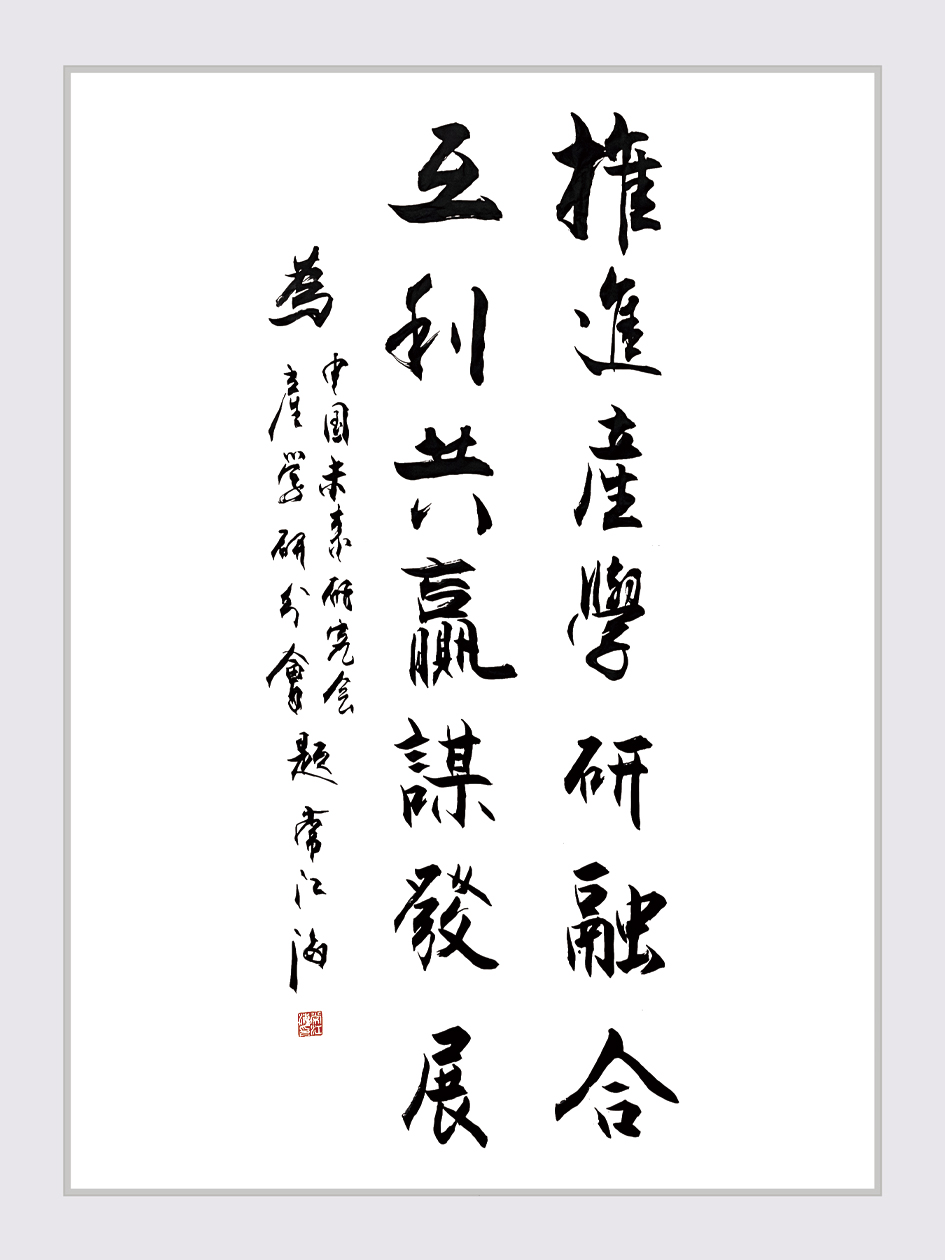 推進産學研融合
互利共贏謀發展
為
中国未来研究会
産学研分會
題 常江海